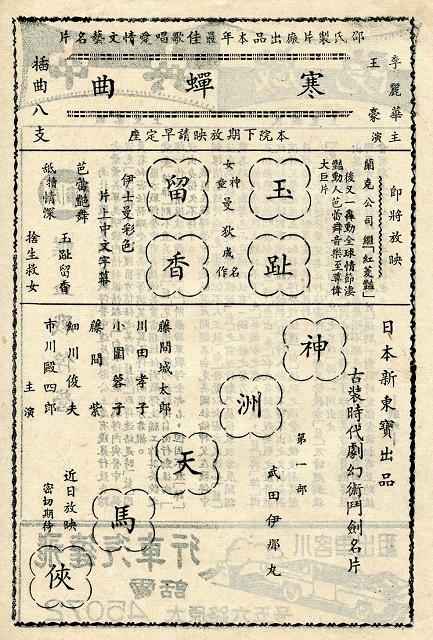 邵氏製片廠出品本年最佳歌唱愛情文藝名片
李麗華
王豪
主演
寒蟬曲
插曲八支
本院下期放映請早定座
即將放映
蘭克公司繼「紅菱艷」
後又一轟動全球情節凄
豔動人芭蕾舞音樂至尊偉
大巨片
玉趾留香
女神童曼狄成名作
伊士曼彩色
片上中文字幕
芭蕾艷舞
玉趾留香
舐犢情深
捨生救女
日本新東寶出品
古裝時代劇幻術鬥劍名片
神洲天馬俠
第一部
武田伊那丸
藤間城太郎
川田孝子
小園蓉子
藤間紫
細川俊夫
市川殿四郎
主演
近日放映
密切期待